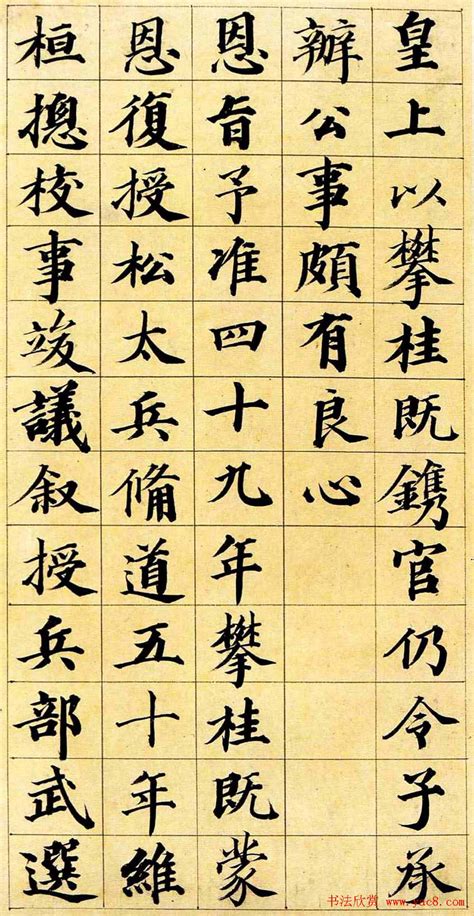 皇上以攀桂既鐫官仍令子承
辦公事頗有良心
恩旨予准四十九年攀桂既蒙
恩復授松太兵備道五十年維
桓摠校事竣議叙授兵部武選
书法欣赏 www.yac8.com